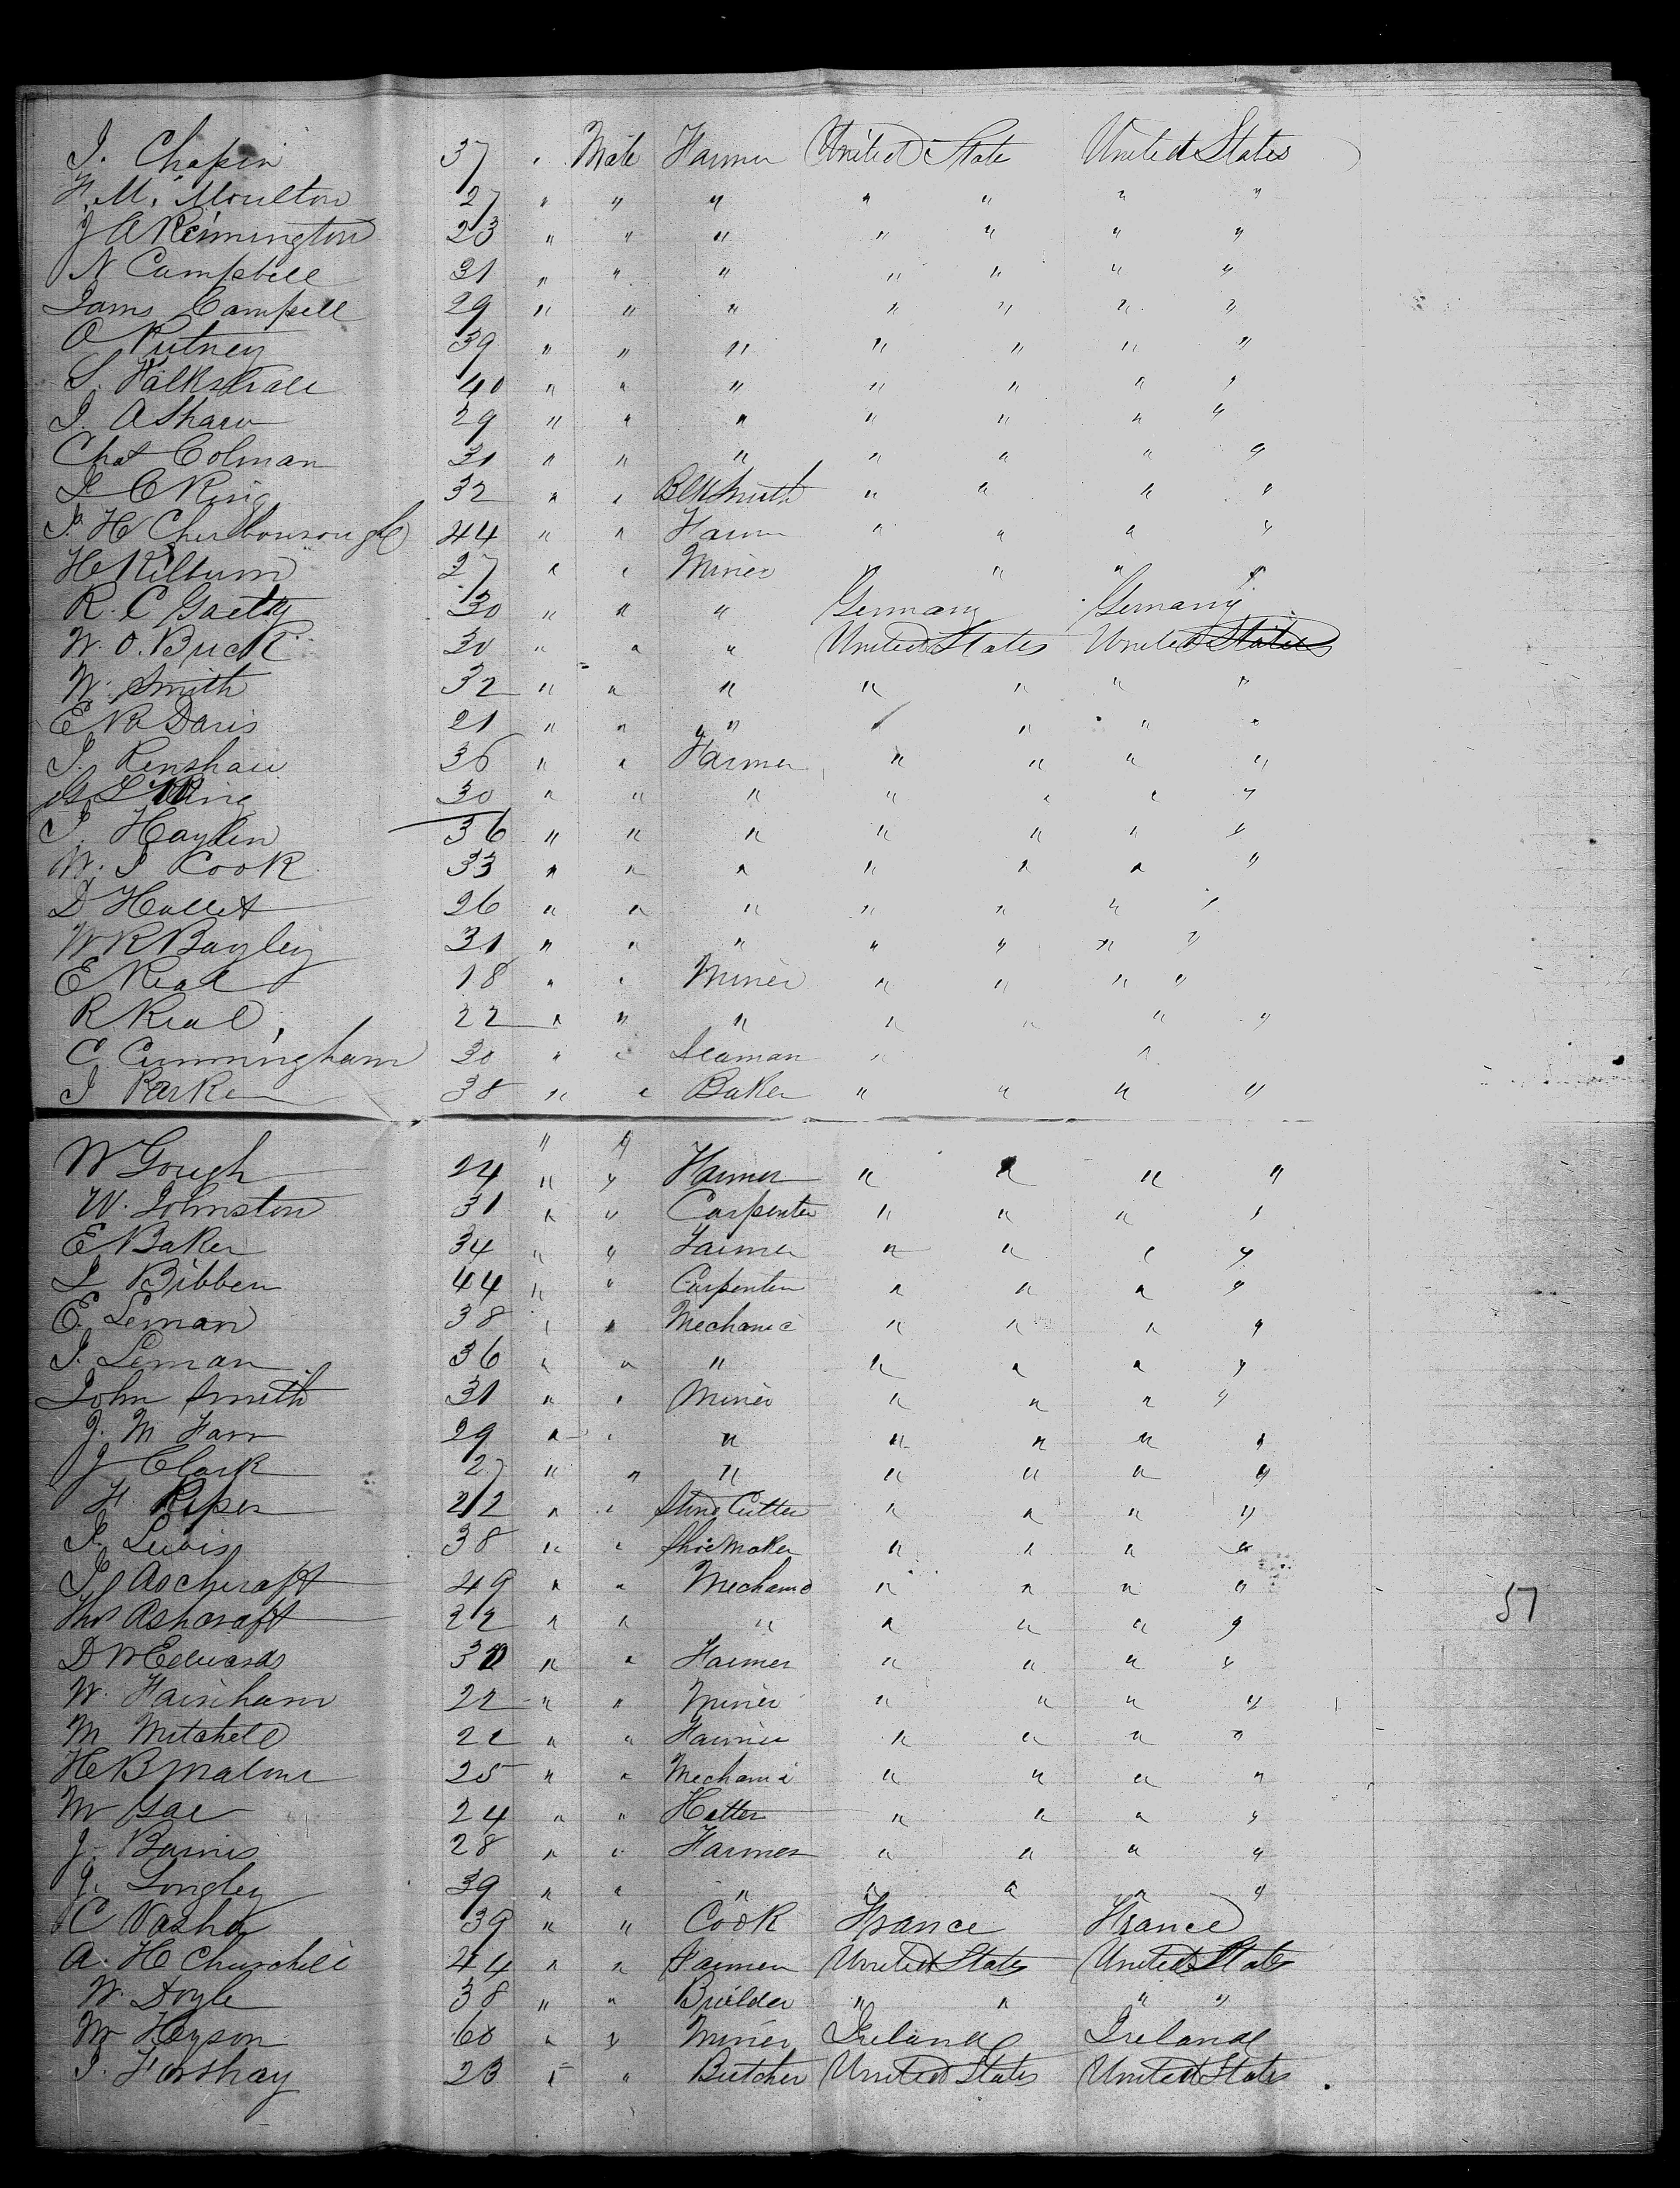 J. Chapin 37 " Male Farmer United State United States
F. M. Moulton 27 " " " " " " "
J A Remington 23 " " " " " " "
N Campbell 31 " " " " " " "
Jams Campell 29 " " " " " " "
O Putney 39 " " " " " " "
S. 40 " " " " " " "
J. A Shaw 29 " " " " " " "
Chas Colman 31 " " " " " " "
J C King 32 " " BlkSmith " " " "
J. H 44 " " Farm " " " "
H Kilburn 27 " " Miner " " " "
R. C Gaetty 30 " " " Germany Germany
W. O. Buck 30 " " " United States United States
W. Smith 32 " " " " " " "
E R Davis 21 " " " " " " "
J. Renshaw 36 " " Farmer " " " "
L King 30 " " " " " " "
J. Hayden 36 " " " " " " "
W. S Cook 33 " " " " " " "
D Hallet 26 " " " " " " "
W R Bagley 31 " " " " " " "
E Real 18 " " Miner " " " "
R. Real, 22 " " " " " " "
C, Cunningham 30 " " Seaman " "
J Parker 38 " " Baker " " " "
" "
W Gough 24 " " Farmer " " " "
W. Johnston 31 " " Carpenter " " " "
E Baker 34 " " Farmer " " " "
J Bibben 44 " " Carpenter " " " "
E. Leman 38 " " Mechanic " " " "
J. Leman 36 " " " " " " "
John Smith 31 " " Miner " " " "
J. M Farr 29 " " " " " " "
J Clark 27 " " " " " " "
F. Piper 22 " " Stone Cutter " " " "
J. Lewis 38 " " Shoe Maker " " " "
J. Aschcraft 49 " " Mechanic " " " "
Thos Ashcraft 22 " " " " " " " 57
D W Edwards 30 " " Farmer " " " "
W. Farnham 22 " " Miner " " " "
M Mitchell 22 " " Farmer " " " "
H B Malone 25 " " Mechanic " " " "
W Gae 24 " " Hatter " " " "
J. Barnis 28 " " Farmer " " " "
J. Longley 39 " " " " " " "
C Vasha 39 " " Cook France France
A. H Churchill 44 " " Farmer United States United States
W. Doyle 38 " " Builder " " " "
W Heyson 60 " " Miner Ireland Ireland
J. Forshay 23 " " Butcher United States United States